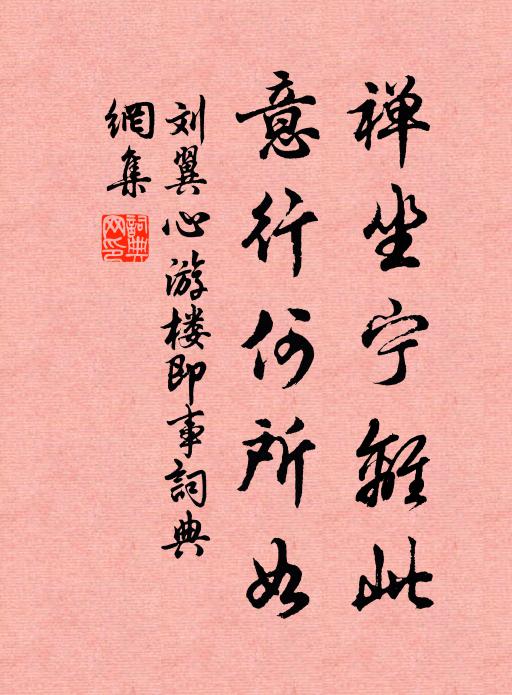 禅坐宁离此
意行何所如
刘翼心游楼即事詞典
網集
詞典网印